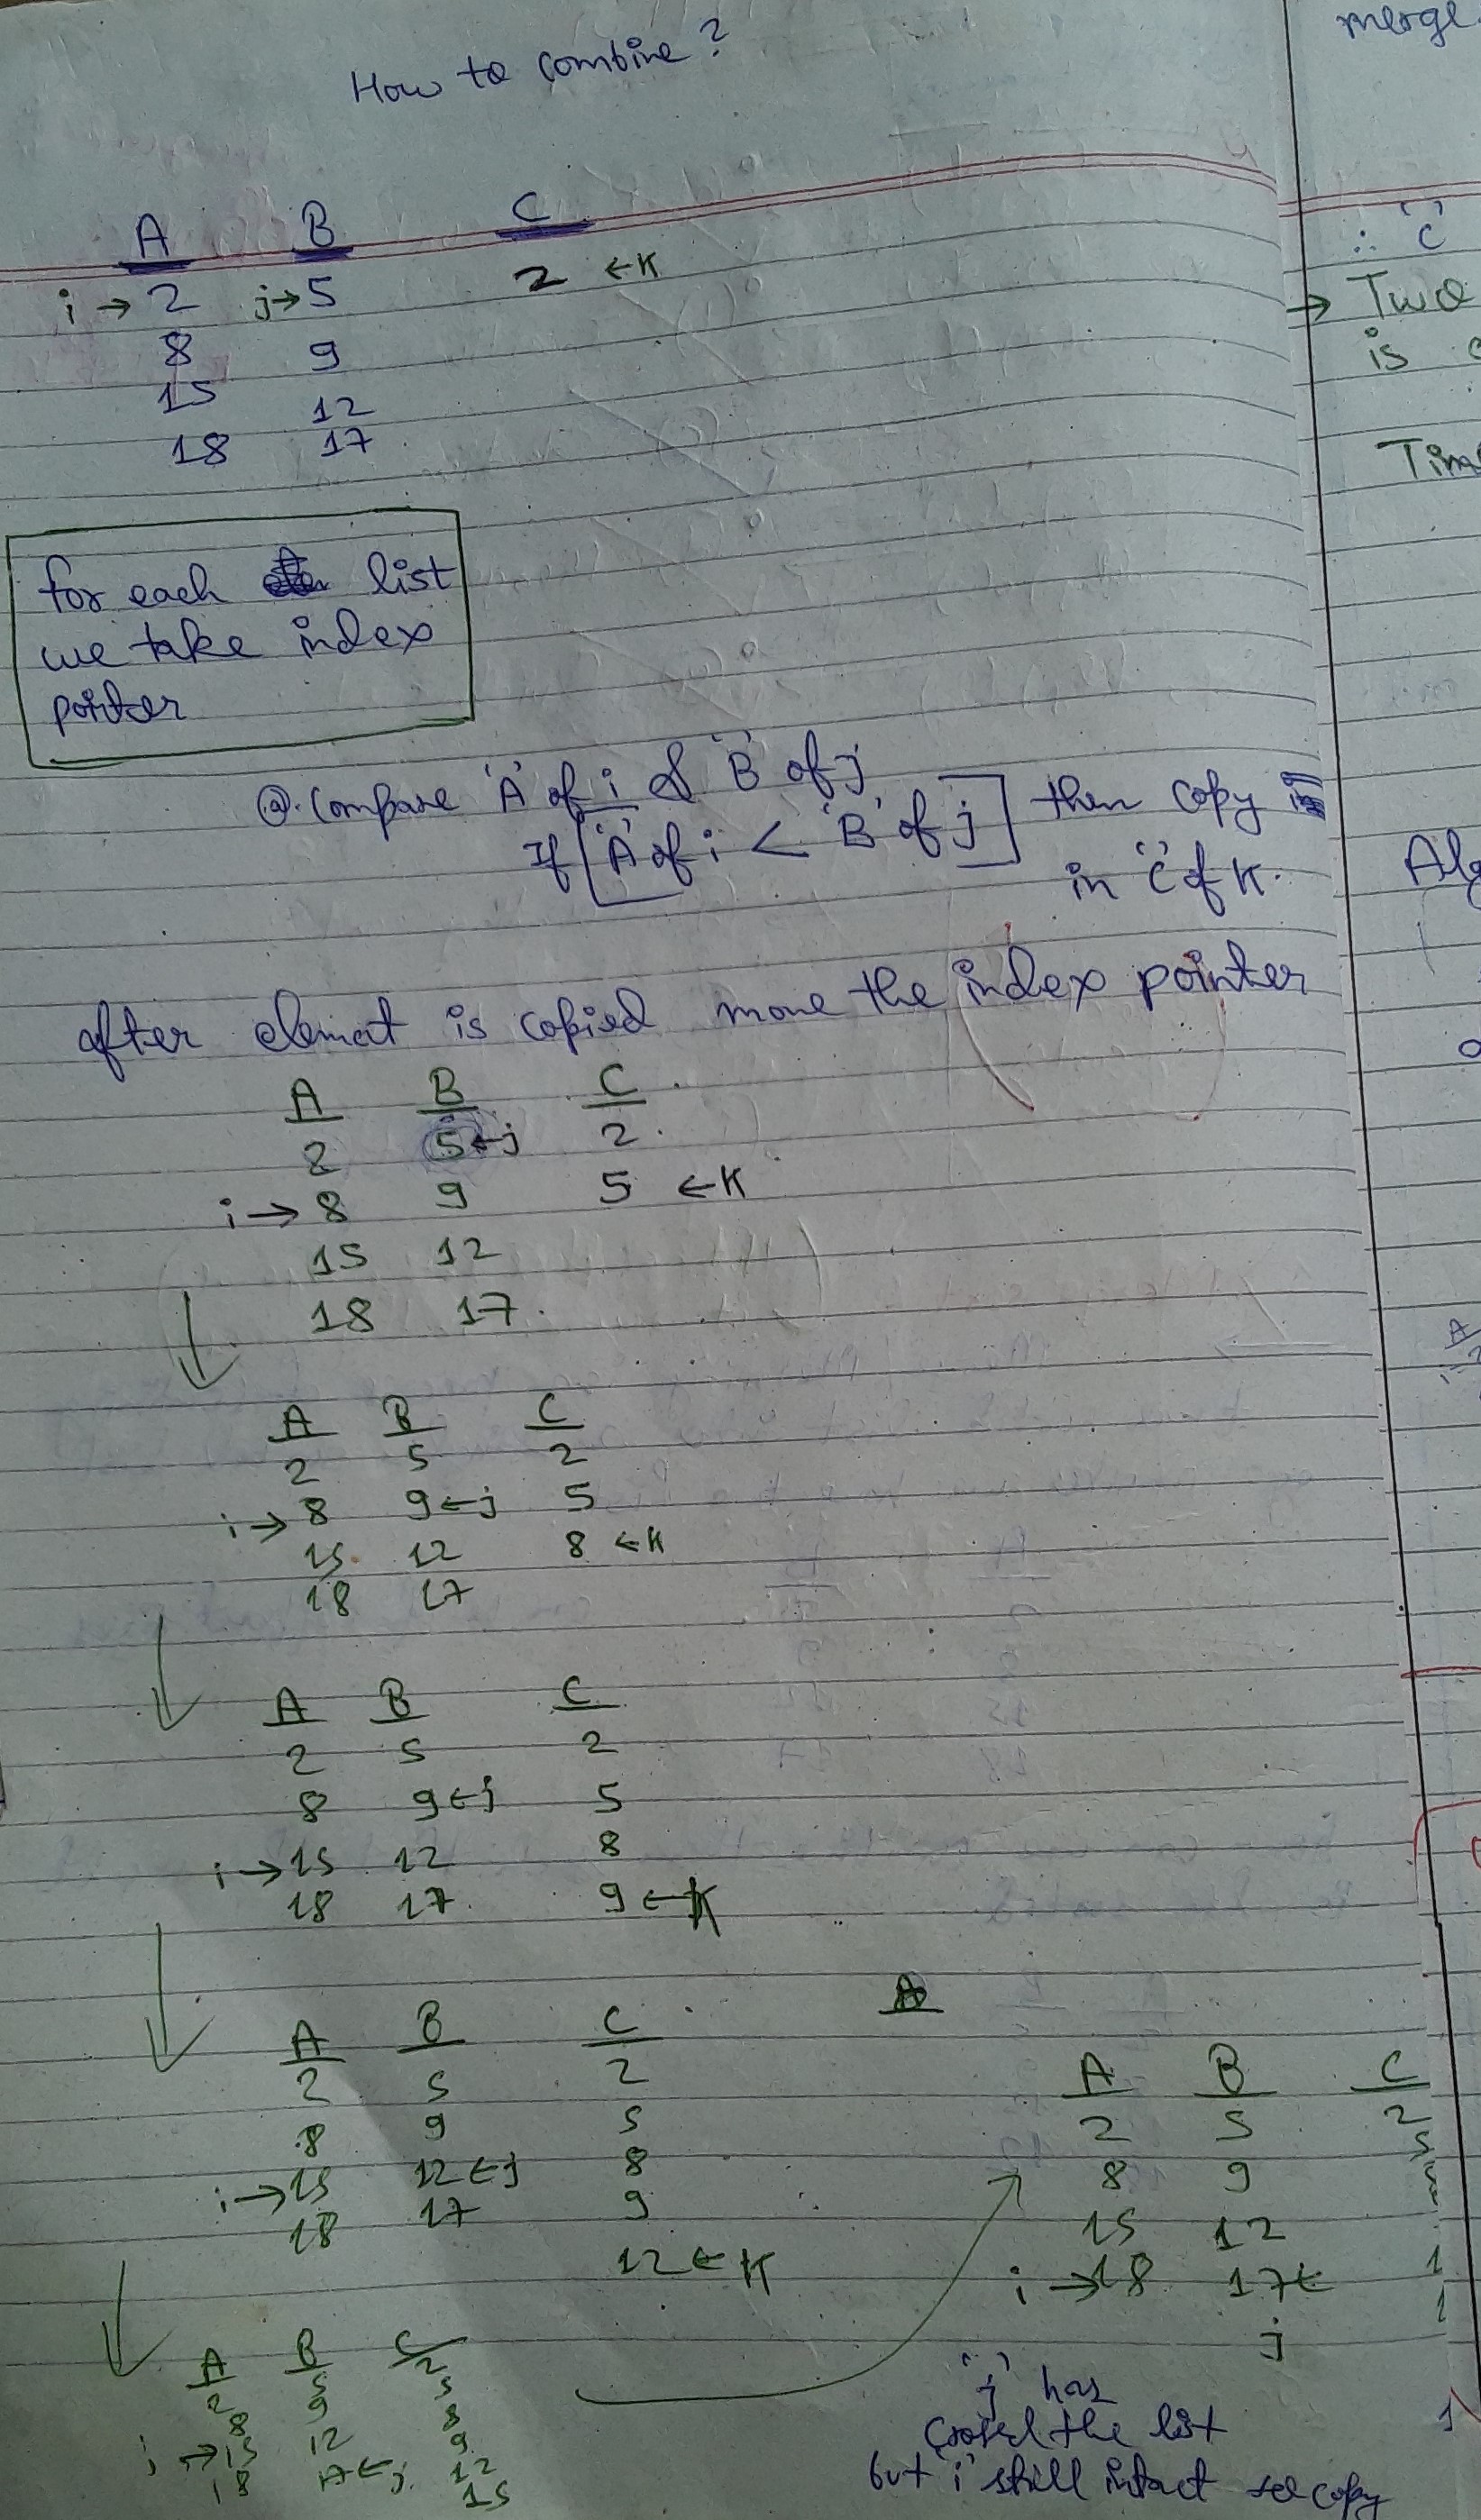 How to combine?
A B C
i → 2 j→ 5 2 ← K
8 9
15 12
18 17
for each list
we take index
pointer
@. Compare 'A' of i & 'B' of j
If ['A' of i < 'B' of j] then copy
in 'C' of K.
after elemat is copied move the index pointer
A B C
2 5 ← j 2
i → 8 9 5 ← K
15 12
18 17
A B C
2 5 2
i → 8 9 ← j 5
15 12 8 ← K
18 17
A B C
2 5 2
8 9 ← j 5
i → 15 12 8
18 17 9 ← K
A B C
2 5 2
8 9 5
i → 15 12 ← j 8
18 17 9
12 ← K
A B C
2 5 2
8 9 5
i → 15 12 8
18 17 ← j 9
12
15
A B C
2 5 2
8 9 5
15 12
i → 18 17 ←
j
'j' has
the list
but 'i' still intact so copy
merge
∴ 'C'
→ Two
is